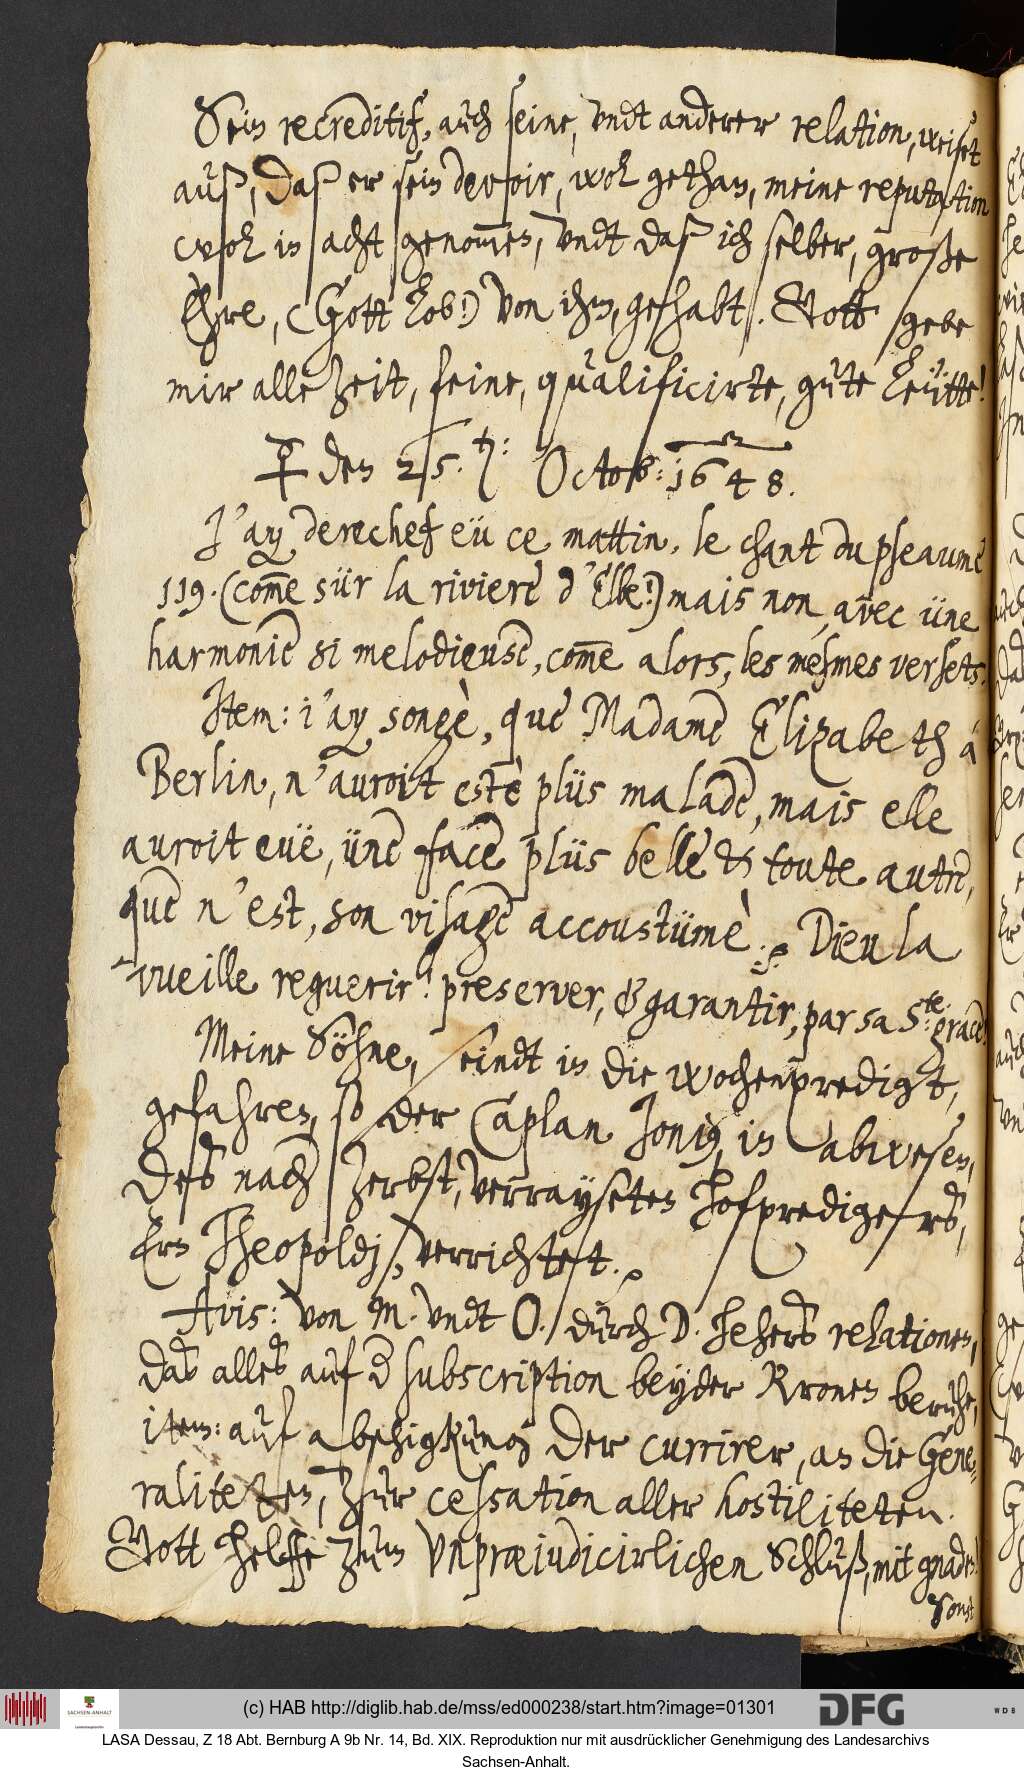 Sein recreditif, auch seine, undt anderer relation, weiset
auß, daß er sein devoir, wol gethan, meine reputation
wol in acht genom̅en, undt daß ich selber, große
Ehre, (Gott lob!) von ihm, gehabt. Gott gebe
mir alle zeit, feine, qualificirte, gute leütte!
den 25. Octob: 1648.
J'ay derechef eü ce mattin, le chant du pseaume
119. (com̅e sür la riviere d'Elbe!) mais non, avec üne
harmonie si melodieuse, com̅e alors, les mesmes versets.
Item: i'ay songè, que Madame Elizabeth á
Berlin, n'auroit estè plüs malade, mais elle
auroit euë, üne face plüs belle & toute autre,
que n'est, son visage accoustümè. Dieu la
vueille reguerir! preserver, & garantir, par sa Ste: grace!
Meine Söhne, seindt in die wochenpredigt,
gefahren, so der Caplan Jonig, in abwesen,
des nach Zerbst, verrayseten Hofpredigers,
Ern Theopoldj, verrichtet.
Avis: von M. undt O. durch D. Hehers relationen,
das alles auf d subscription beyder Kronen beruhe,
item: auf abschigkung der currirer, an die Gene-
raliteten, zur cessation aller hostiliteten.
Gott helffe zum unpræiudicirlichen Schluß, mit gnaden!
Sonst
(c) HAB http://diglib.hab.de/mss/ed000238/start.htm?image=01301
SACHSEN-ANHALT
Landesarchiv
DFG
WDB
LASA Dessau, Z 18 Abt. Bernburg A 9b Nr. 14, Bd. XIX. Reproduktion nur mit ausdrücklicher Genehmigung des Landesarchivs
Sachsen-Anhalt.